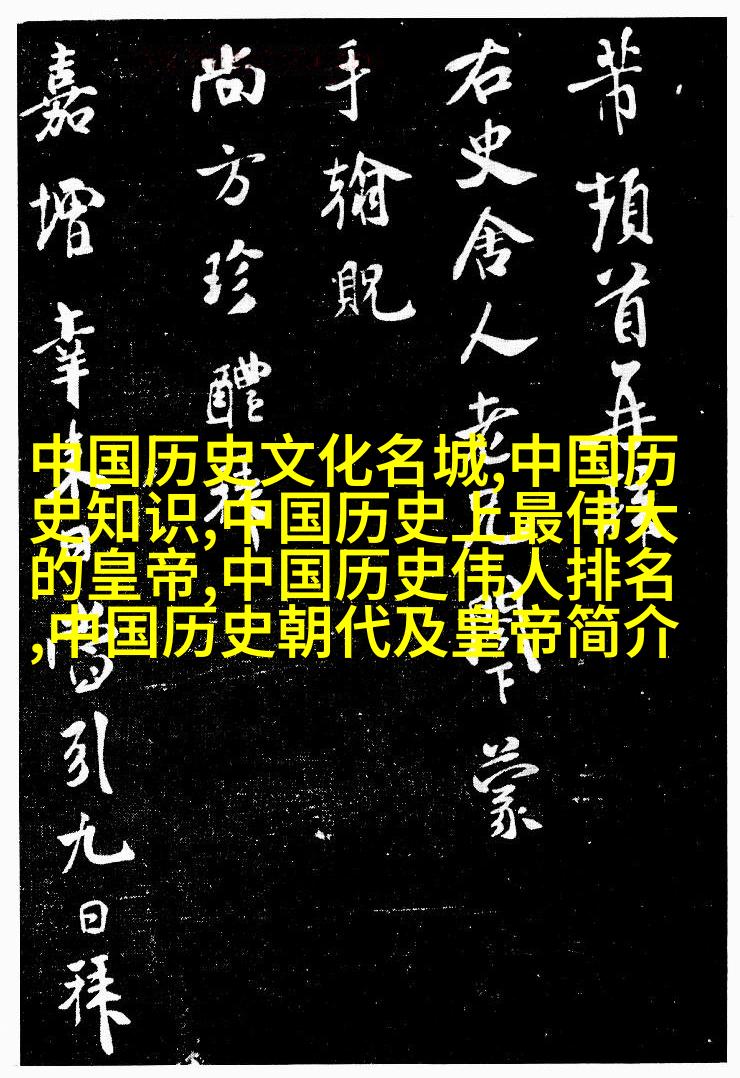 芾頓首再拜
右史舍人老兄閣下蒙
手翰貺
尚方珍醴
嘉增幸引九日拜
中国历史文化名城,中国历
史知识,中国历史上最伟大
的皇帝,中国历史伟人排名
,中国历史朝代及皇帝简介